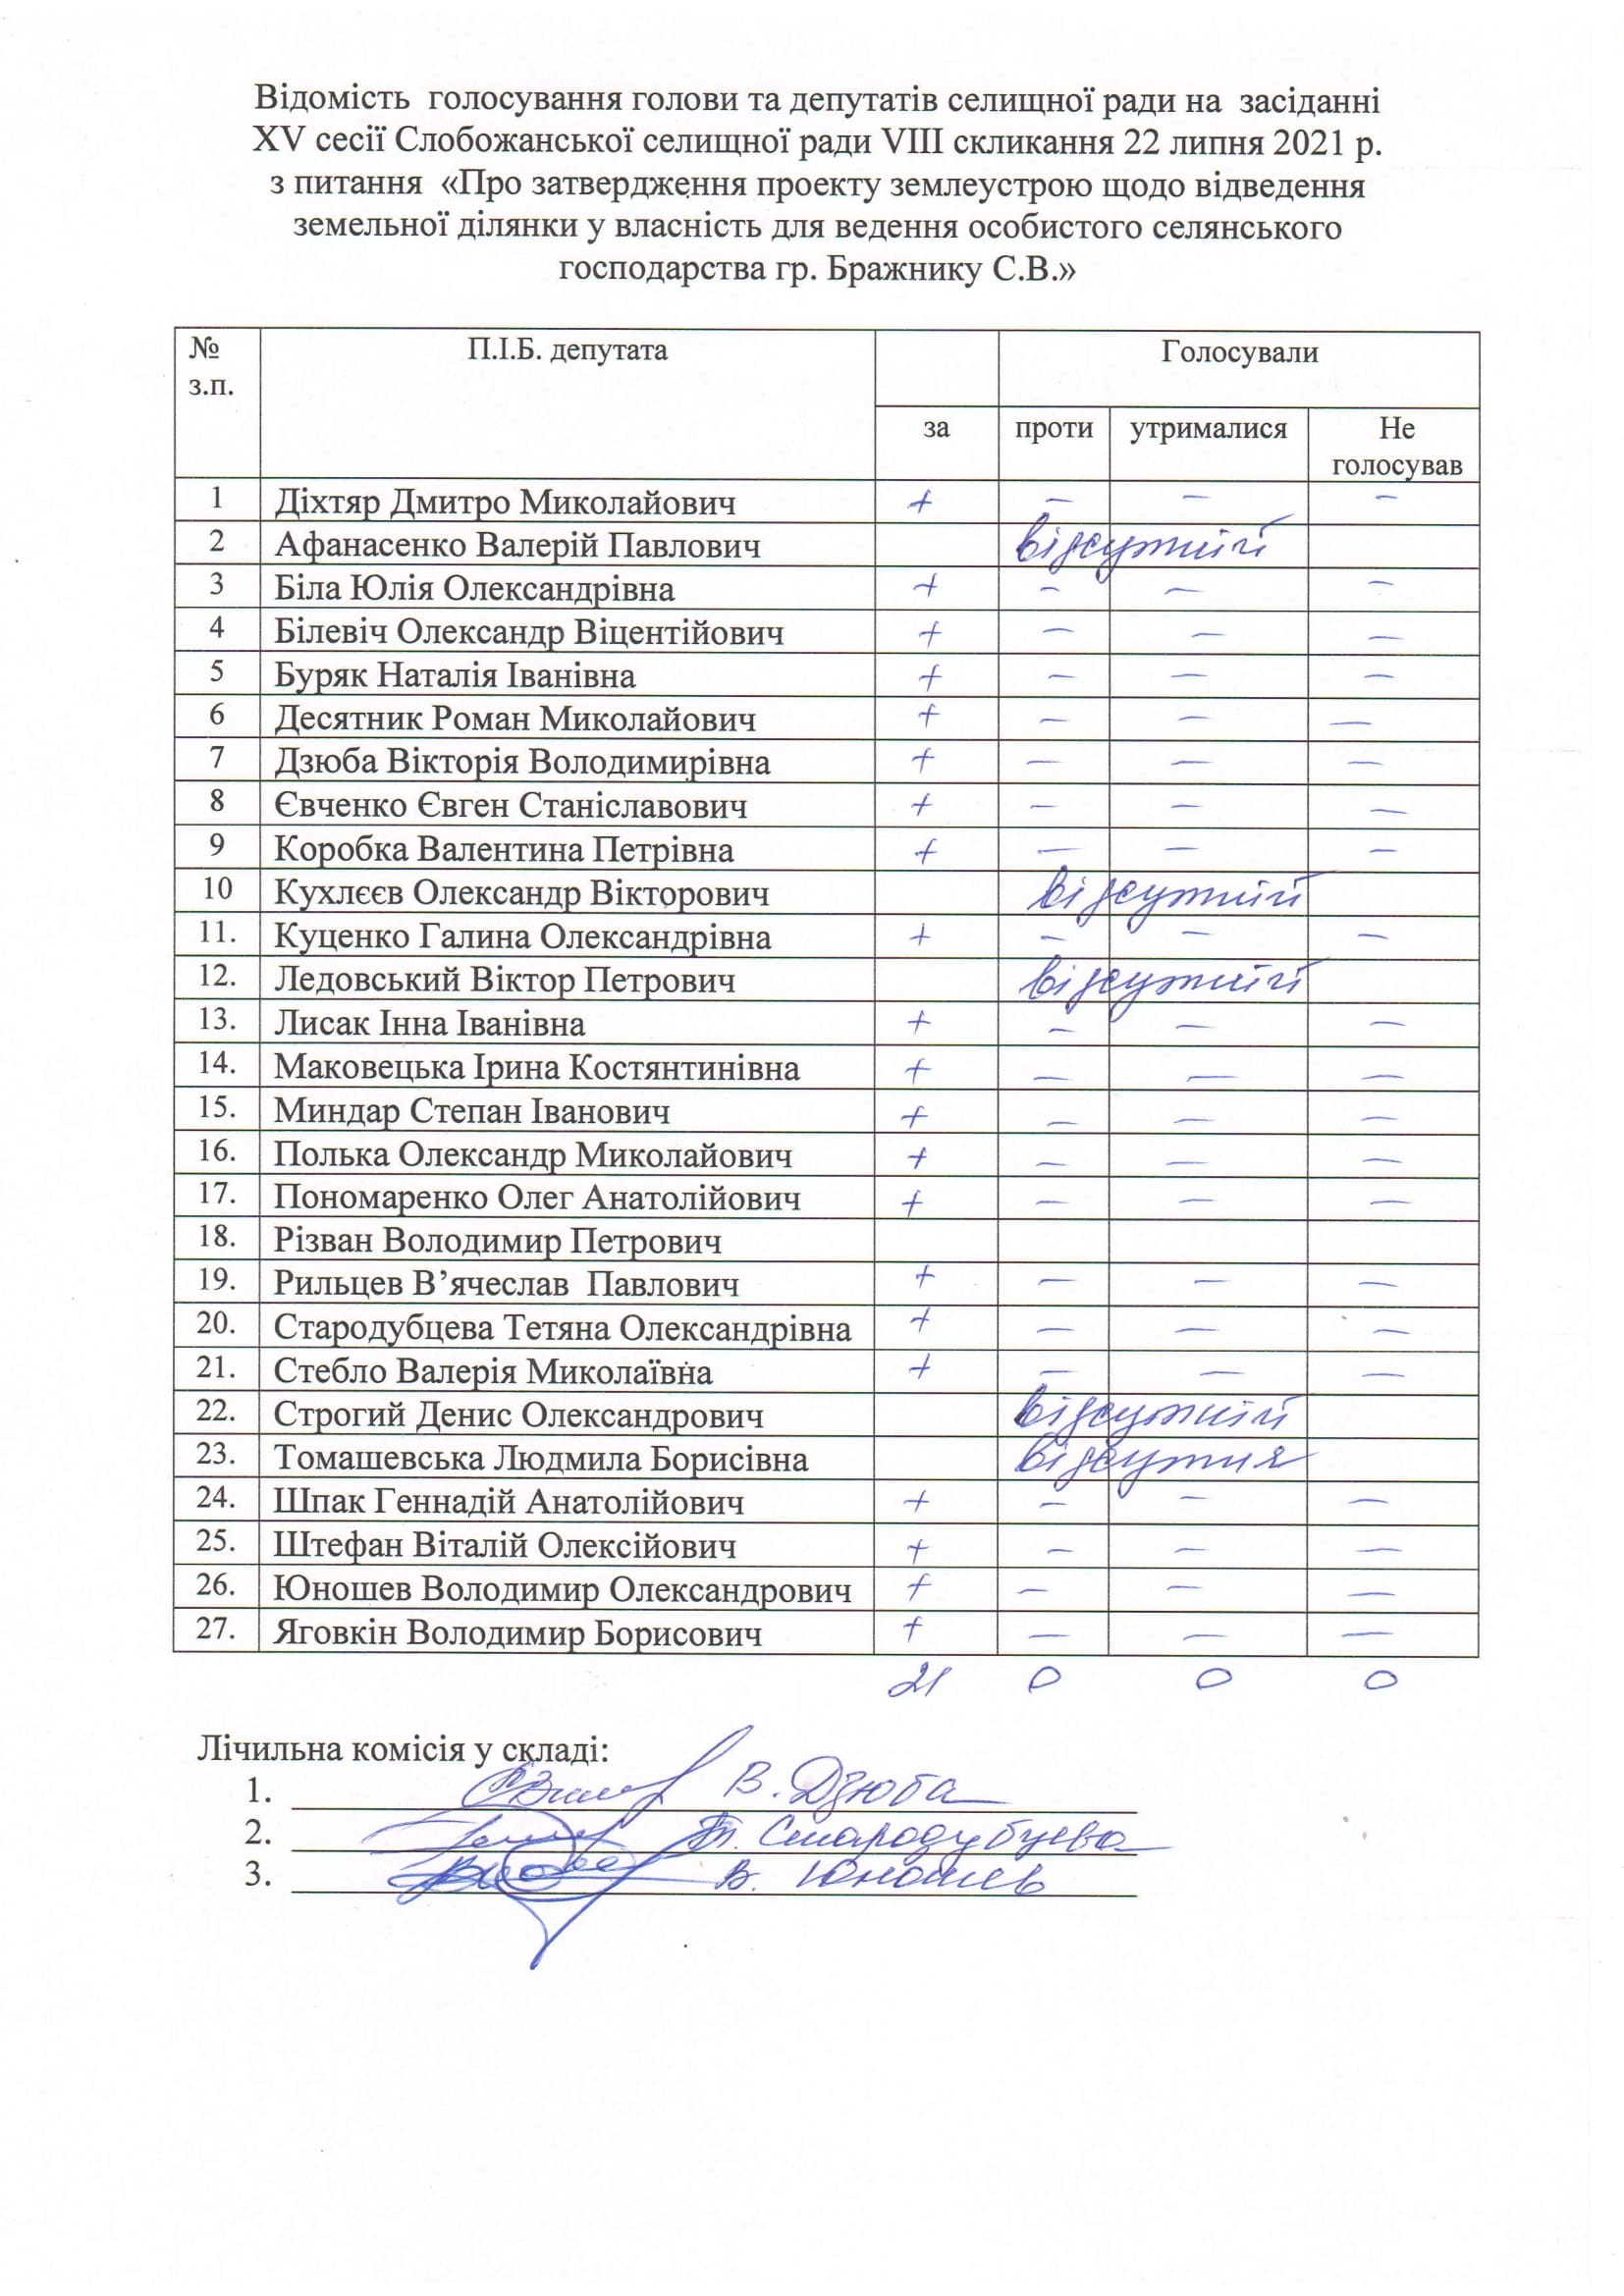 Відомість голосування голови та депутатів селищної ради на засіданні
XV сесії Слобожанської селищної ради VIII скликання 22 липня 2021 р.
з питання «Про затвердження проекту землеустрою щодо відведення
земельної ділянки у власність для ведення особистого селянського
господарства гр. Бражнику С.В.»
№ з.п. П.І.Б. депутата Голосували
за проти утрималися Не голосував
1 Діхтяр Дмитро Миколайович + – – –
2 Афанасенко Валерій Павлович відсутній
3 Біла Юлія Олександрівна + – – –
4 Білевіч Олександр Віцентійович + – – –
5 Буряк Наталія Іванівна + – – –
6 Десятник Роман Миколайович + – – –
7 Дзюба Вікторія Володимирівна + – – –
8 Євченко Євген Станіславович + – – –
9 Коробка Валентина Петрівна + – – –
10 Кухлєєв Олександр Вікторович відсутній
11. Куценко Галина Олександрівна + – – –
12. Ледовський Віктор Петрович відсутній
13. Лисак Інна Іванівна + – – –
14. Маковецька Ірина Костянтинівна + – – –
15. Миндар Степан Іванович + – – –
16. Полька Олександр Миколайович + – – –
17. Пономаренко Олег Анатолійович + – – –
18. Різван Володимир Петрович
19. Рильцев В’ячеслав Павлович + – – –
20. Стародубцева Тетяна Олександрівна + – – –
21. Стебло Валерія Миколаївна + – – –
22. Строгий Денис Олександрович відсутній
23. Томашевська Людмила Борисівна відсутня
24. Шпак Геннадій Анатолійович + – – –
25. Штефан Віталій Олексійович + – – –
26. Юношев Володимир Олександрович + – – –
27. Яговкін Володимир Борисович + – – –
21 0 0 0
Лічильна комісія у складі:
1. В. Дзюба
2. Т. Стародубцева
3. В. Юношев